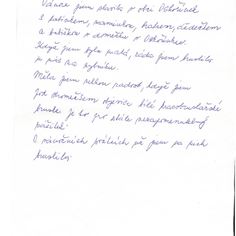 Vánoce jsem slavila v obci Ostrůvek
s tatínkem, maminkou, bratrem, dědečkem
a babičkou v domečku v Ostrůvku.
Když jsem byla malá, ráda jsem bruslila
u nás na rybníku.
Měla jsem velkou radost, když jsem
pod stromečkem objevila bílé krasobruslařské
brusle. Je to pro mě nezapomenutelný
zážitek.
O vánočních svátcích už jsem na nich
bruslila.